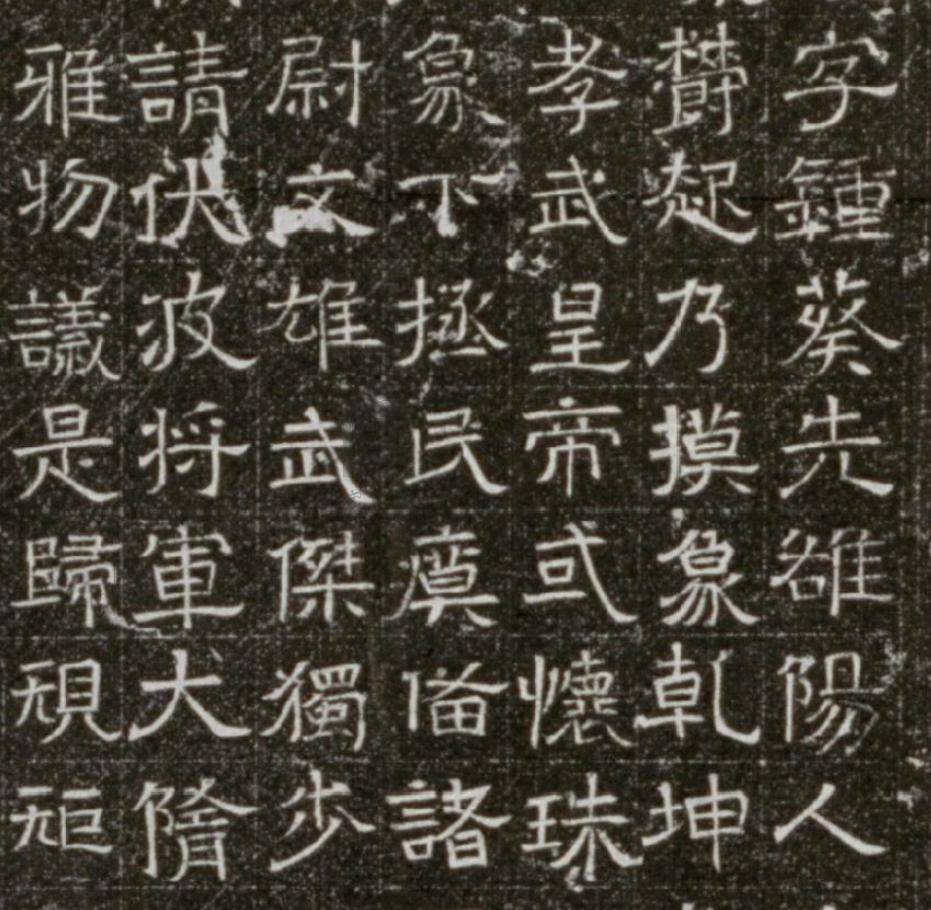 字鍾葵先雒陽人
欝起乃摸象乾坤
孝武皇帝或懷珠
象下拯民瘼俻諸
尉文雄武傑獨步
請伏波将軍大隋
雅物議是歸規矩